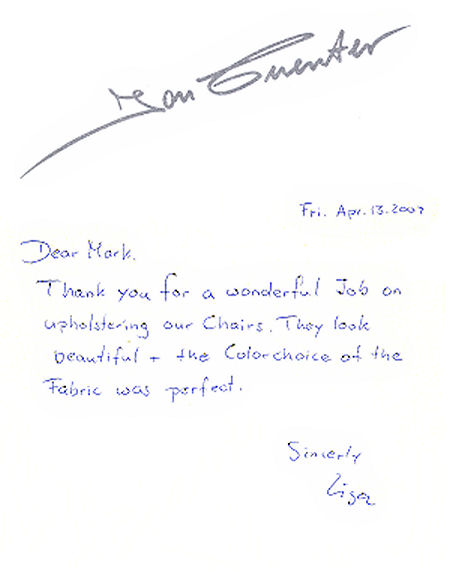 Guenter
Fri. Apr. 13. 2007
Dear Mark.
Thank you for a wonderful Job on
upholstering our Chairs. They look
beautiful + the Colorchoice of the
Fabric was perfect.
Sincerly